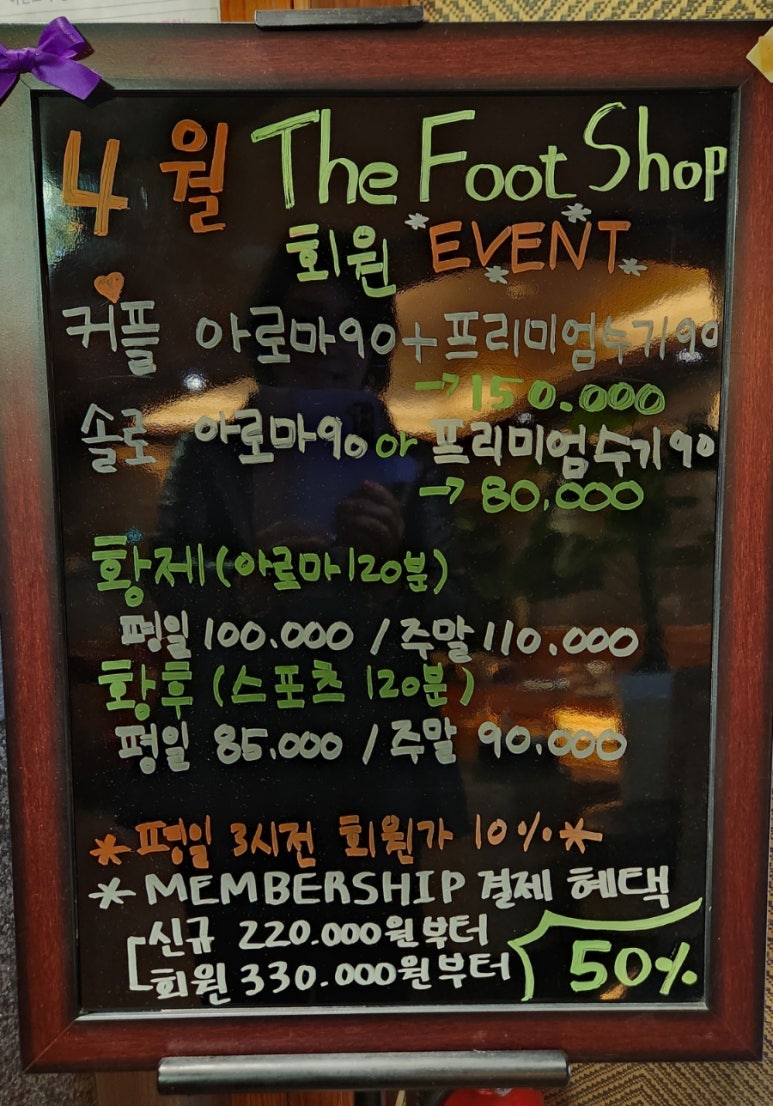 4월 The Foot Shop
회원 *EVENT*
커플 아로마90+프리미엄수기90
→150.000
솔로 아로마90 or 프리미엄수기90
→80,000
황제(아로마120분)
평일 100.000 / 주말 110.000
황후(스포츠 120분)
평일 85.000 / 주말 90.000
*평일 3시전 회원가 10%*
*MEMBERSHIP 결제 혜택
신규 220.000원부터
회원 330.000원부터
50%